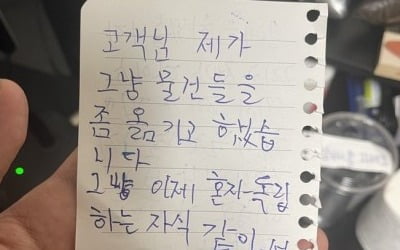 고객님 제가
그냥 물건들을
좀 옮기고 했습
니다
그냥 이제 혼자 독립
하는 자식 같이